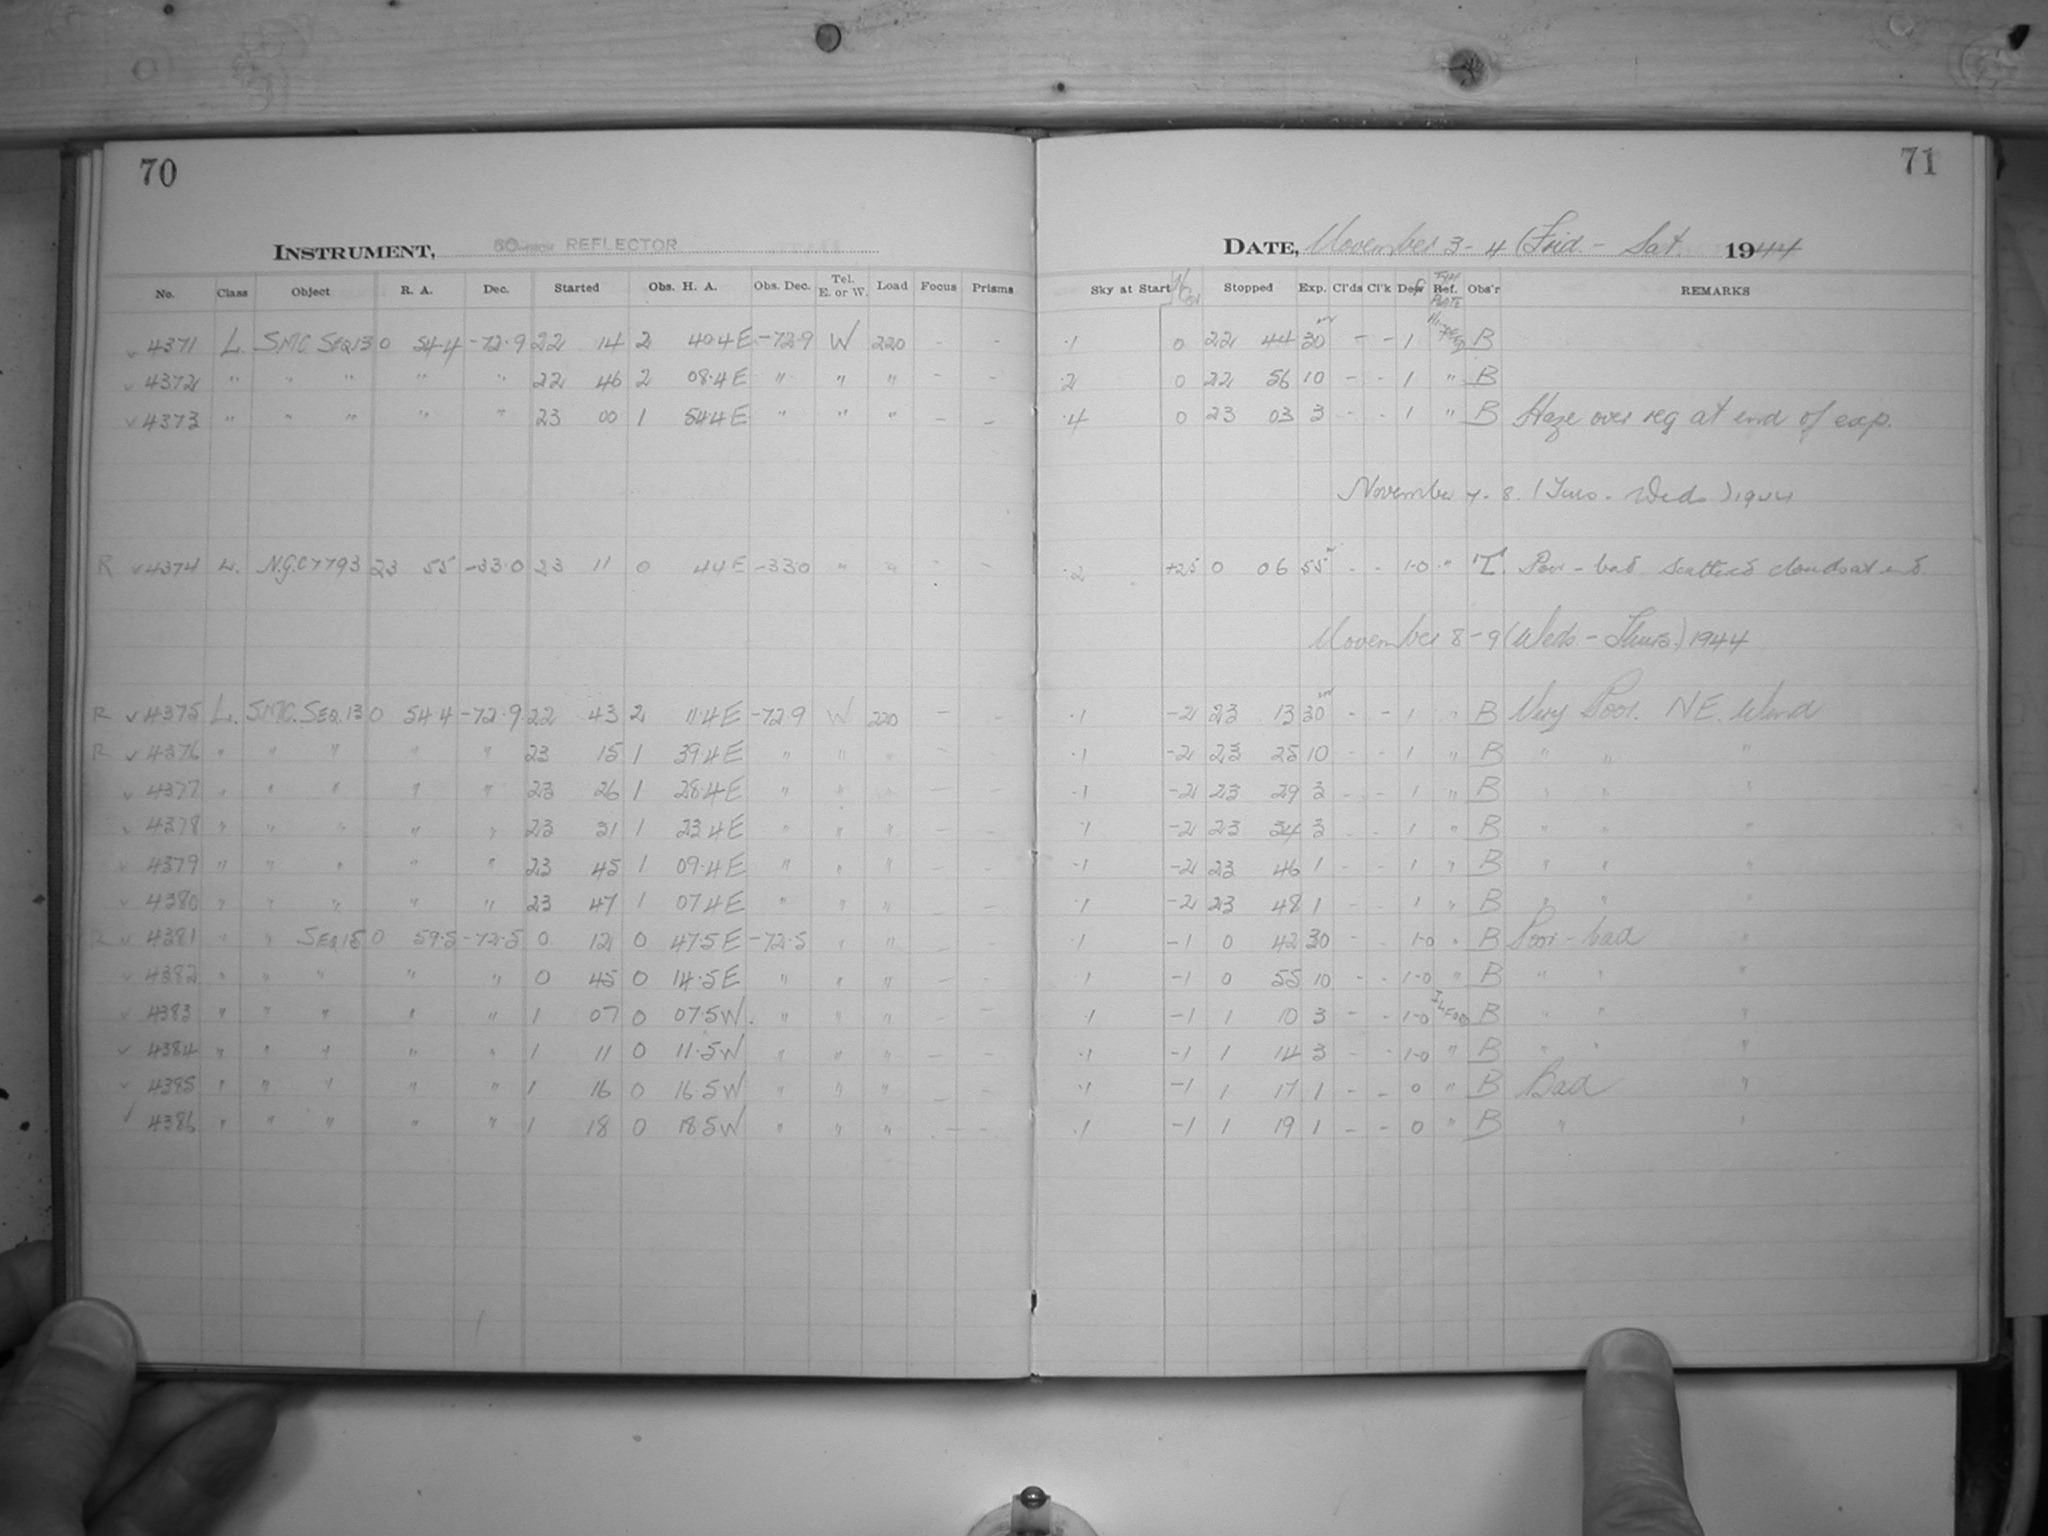 70
71
INSTRUMENT, 60-INCH REFLECTOR
DATE, November 3-4 (Frid - Sat. 1944
No. Class Object R. A. Dec. Started Obs. H. A. Obs. Dec. Tel. E. or W. Load Focus Prisms Sky at Start Stopped Exp. Cl'ds Cl'k Dew Ref. PLATE Obs'r REMARKS
v 4371 L. SMC SEQ 13 0 54.4 -72.9 22 14 2 40.4 E -72.9 W 220 - - .1 0 22 44 30 - - 1 B
v 4372 " " " " " 22 46 2 08.4 E " " " - - .2 0 22 56 10 - - 1 " B
v 4373 " " " " " 23 00 1 54.4 E " " " - - .4 0 23 03 3 - - 1 " B Haze over reg at end of exp.
November 7-8. (Tues - Weds) 1944
R v 4374 L. N.G.C 7793 23 55 -33.0 23 11 0 44 E -33.0 " " - - .2 +25 0 06 55 - - 1-0 " T. Poor - bad. Scattered clouds at end.
November 8-9 (Weds - Thurs.) 1944
R v 4375 L. SMC. SEQ. 13 0 54.4 -72.9 22 43 2 11.4 E -72.9 W 220 - - .1 -2 23 13 30 - - 1 " B Very Poor. NE. Wind
R v 4376 " " " " " 23 15 1 39.4 E " " " - - .1 -2 23 25 10 - - 1 " B " " "
v 4377 " " " " " 23 26 1 28.4 E " " " - - .1 -2 23 29 3 - - 1 " B " " "
v 4378 " " " " " 23 31 1 23.4 E " " " - - .1 -2 23 34 3 - - 1 " B " " "
v 4379 " " " " " 23 45 1 09.4 E " " " - - .1 -2 23 46 1 - - 1 " B " " "
v 4380 " " " " " 23 47 1 07.4 E " " " - - .1 -2 23 48 1 - - 1 " B " " "
R v 4381 " " SEQ 15 0 59.5 -72.5 0 12 0 47.5 E -72.5 " " - - .1 -1 0 42 30 - - 1-0 " B Poor - bad "
v 4382 " " " " " 0 45 0 14.5 E " " " - - .1 -1 0 55 10 - - 1-0 " B " " "
v 4383 " " " " " 1 07 0 07.5 W. " " " - - .1 -1 1 10 3 - - 1-0 ILFORD B " " "
v 4384 " " " " " 1 11 0 11.5 W " " " - - .1 -1 1 14 3 - - 1-0 " B " " "
v 4385 " " " " " 1 16 0 16.5 W " " " - - .1 -1 1 17 1 - - 0 " B Bad "
v 4386 " " " " " 1 18 0 18.5 W " " " - - .1 -1 1 19 1 - - 0 " B " "